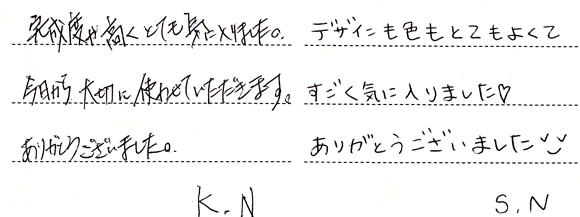 完成度が高くとても気に入りました。
今日から大切に使わせていただきます。
ありがとうございました。
K.N
デザインも色もとてもよくて
すごく気に入りました♡
ありがとうございました
S.N